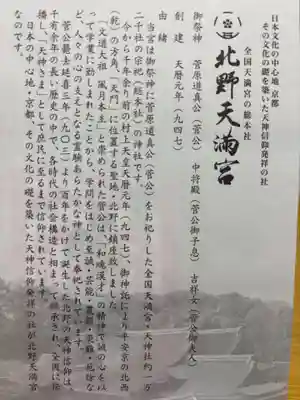 日本文化の中心地 京都
その文化の礎を築いた天神信仰発祥の社
全国天満宮の総本社
北野天満宮
御祭神 菅原道真公(菅公) 中将殿(菅公御子息) 吉祥女(菅公御夫人)
創建 天暦元年(九四七)
由緒
当宮は御祭神に菅原道真公(菅公)をお祀りした全国天満宮・天神社約一万
二千社の宗祀(総本社)の神社です。
今から千有余年前の村上天皇天暦元年(九四七)、御神託により平安京の北西
(乾)の方角、「天門」に位置する聖地・北野に鎮座致しました。
「文道大祖 風月本主」と崇められた菅公は、「和魂漢才」の精神で誠の心を以
って学業に勤しまれたことから、学問をはじめ至誠・芸能・
など、人々の心の支えとなる霊験あらたかな神として奉祀されています。
菅公薨去延喜三年(九〇三)より百年をかけて誕生した北野の天神信仰は、
千有余年の長い歴史の中で、各時代の社会構造と相まって継承され、全国に伝
播し、「天神さま」として庶民に至るまで信仰されています。
日本の中心地・京都で、その文化の礎を築いた天神信仰発祥の社が北野天満宮
なのです。